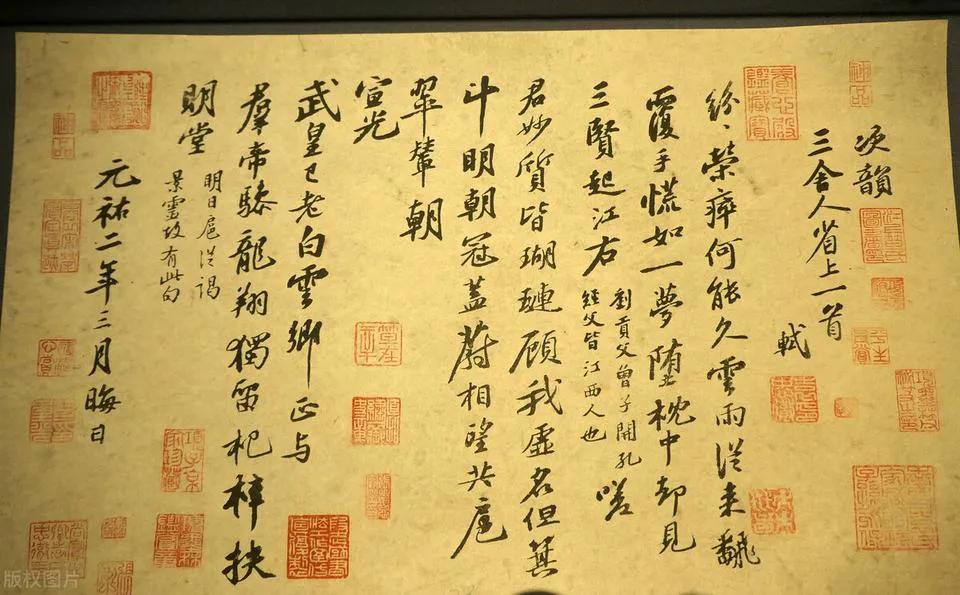 次韻
三舍人省上一首
軾
紛〻榮瘁何能久雲雨從来翻
覆手慌如一夢堕枕中却見
三賢起江右
劉貢父曾子開孔
經父皆江西人也
嗟
君妙質皆瑚璉顧我虛名但箕
斗明朝冠蓋蔚相望共扈
翠輦朝
宣光
武皇已老白雲鄉正与
羣帝驂龍翔獨留杞梓扶
明堂
明日扈從謁
景靈故有此句
元祐二年三月晦日
項子京家珍藏
版权图片